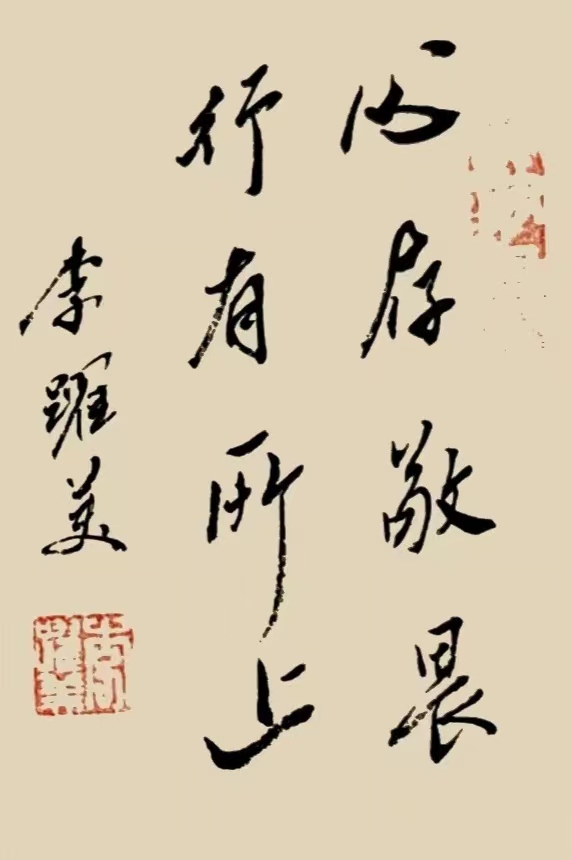 心存敬畏
行有所止
李躍美